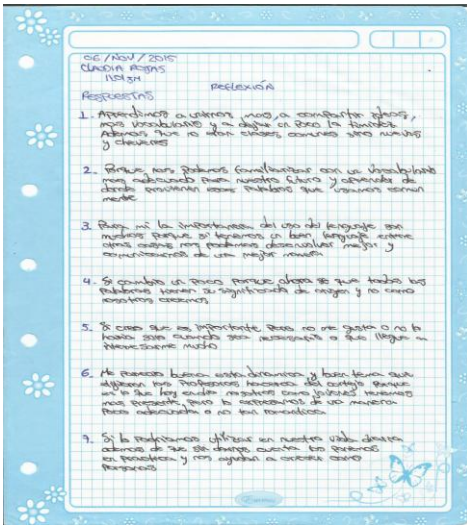 06/NOV/2015
CLAUDIA ROJAS
REFLEXIÓN
RESPUESTAS
1. Aprendimos a unirnos mas, a compartir ideas,
mas vocabulario y a dejar un poco la timidez
Ademas que no eran clases comunes sino nuevas
y cheveres
2. Porque nos podemos familiarizar con un vocabulario
mas adecuado para nuestro futuro y aprender de
donde provienen esas palabras que usamos comun
mente
3. Para mi la importancia del uso del lenguaje son
muchas porque si tenemos un buen lenguaje entre
otras cosas nos podemos desenvolver mejor y
comunicarnos de una mejor manera
4. Si cambio un poco porque ahora se que todas las
palabras tienen su significado de origen y no como
nosotros creemos
5. Si creo que es importante pero no me gusta o no lo
haria solo cuando sea necesario o que llegue a
interesarme mucho
6. Me parecio buena esta dinamica, y buen tema que
eligieron los profesores del cortejo porque
en lo que hoy en dia nosotros como jovenes tenemos
mas presente, pero a expresarnos de una manera
poco adecuada o no tan romantica
7. Si la podriamos utilizar en nuestra vida diaria
ademas de que sin darnos cuenta las ponemos
en practica y nos ayudan a crecer como
personas